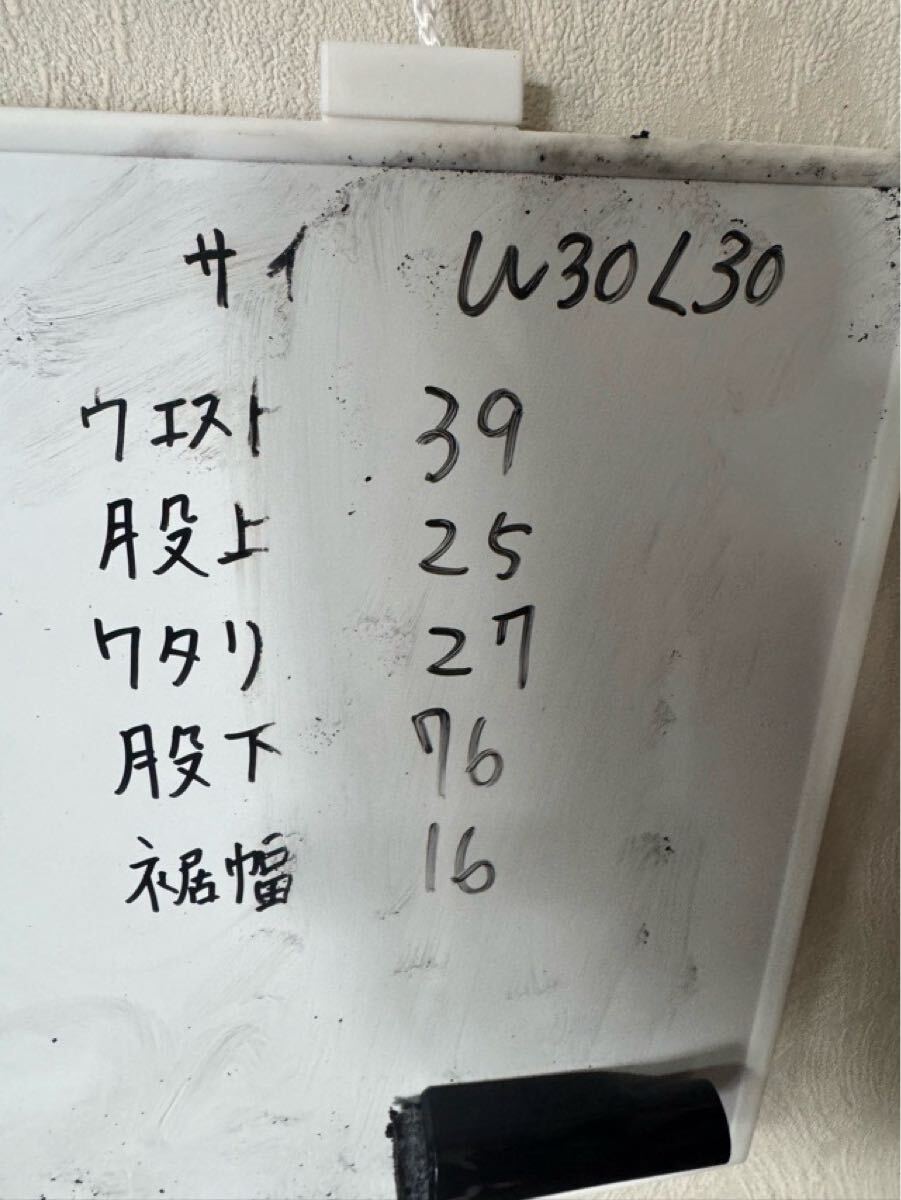 サイ W30L30
ウエスト 39
股上 25
ワタリ 27
股下 76
裾幅 16